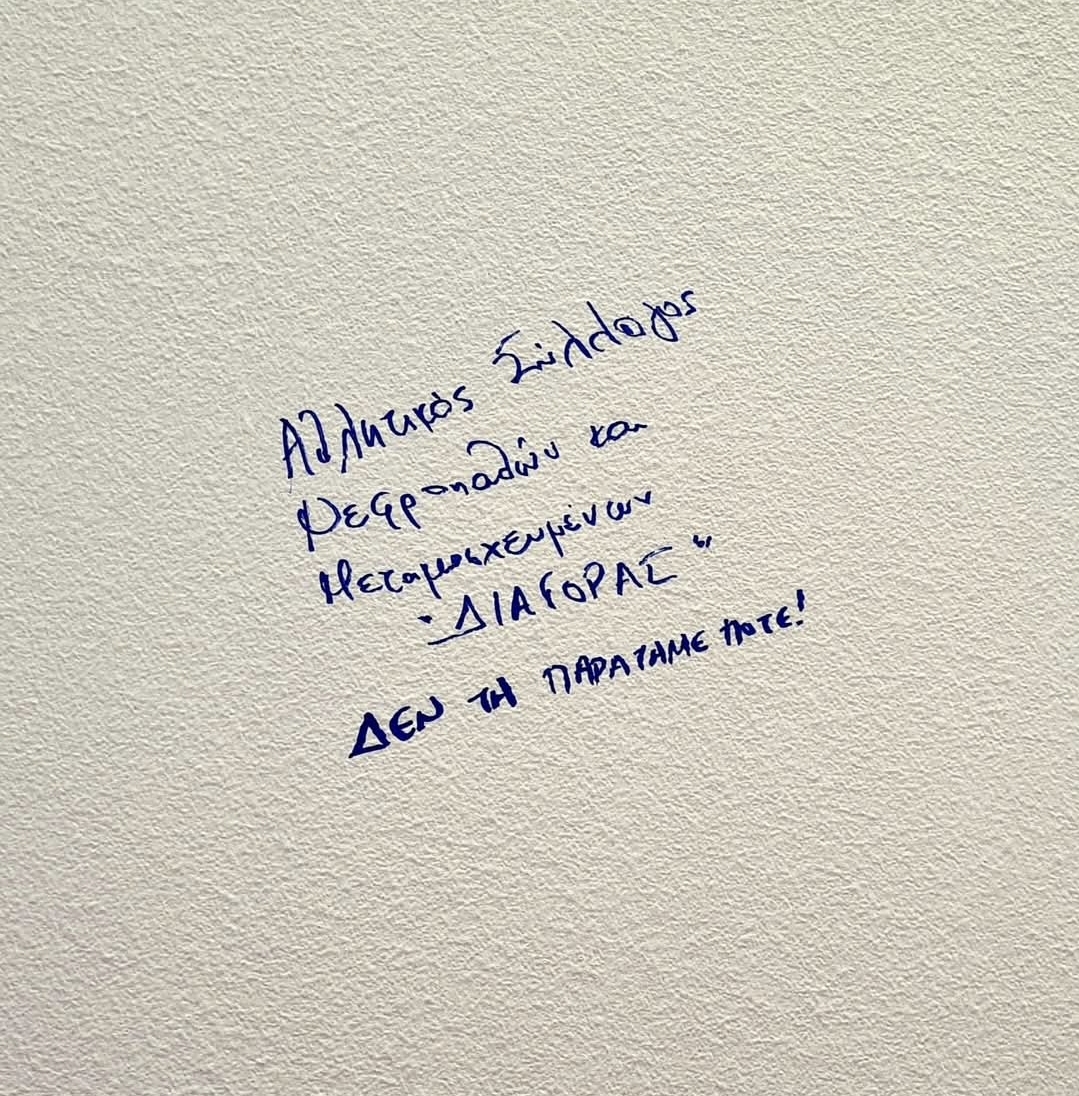 Αθλητικός Σύλλογος
Νεφροπαθών και
Μεταμοσχευμένων
"ΔΙΑΓΟΡΑΣ"
ΔΕΝ ΤΑ ΠΑΡΑΤΑΜΕ ΠΟΤΕ!